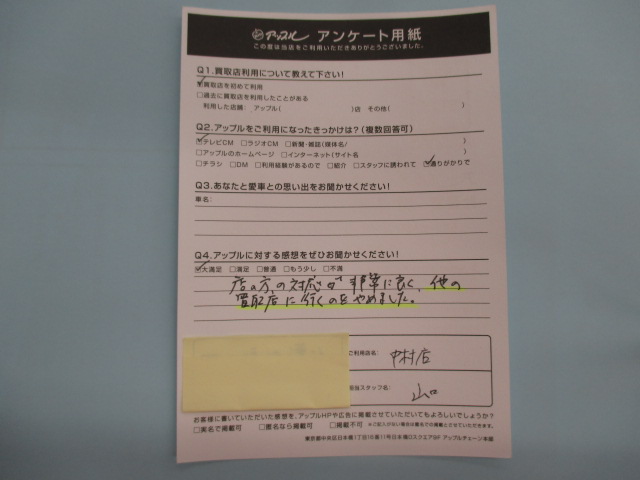 アップル アンケート用紙
この度は当店をご利用いただきありがとうございました。
Q1.買取店利用について教えて下さい!
☑買取店を初めて利用
□過去に買取店を利用したことがある
利用した店舗: アップル( )店 その他( )
Q2.アップルをご利用になったきっかけは?(複数回答可)
☑テレビCM □ラジオCM □新聞・雑誌(媒体名/ )
□アップルのホームページ □インターネット(サイト名 )
□チラシ □DM □利用経験があるので □紹介 □スタッフに誘われて ☑通りがかりで
Q3.あなたと愛車との思い出をお聞かせください!
車名:
Q4.アップルに対する感想をぜひお聞かせください!
☑大満足 □満足 □普通 □もう少し □不満
店の方の対応が非常に良く、他の
買取店に行くのをやめました。
ご利用店名: 中村店
担当スタッフ名: 山口
お客様に書いていただいた感想を、アップルHPや広告に掲載させていただいてもよろしいでしょうか?
□実名で掲載可 □匿名なら掲載可 □掲載不可 ※ご記入がない場合は匿名での掲載とさせていただきます。
東京都中央区日本橋1丁目16番11号日本橋Dスクエア8F アップルチェーン本部